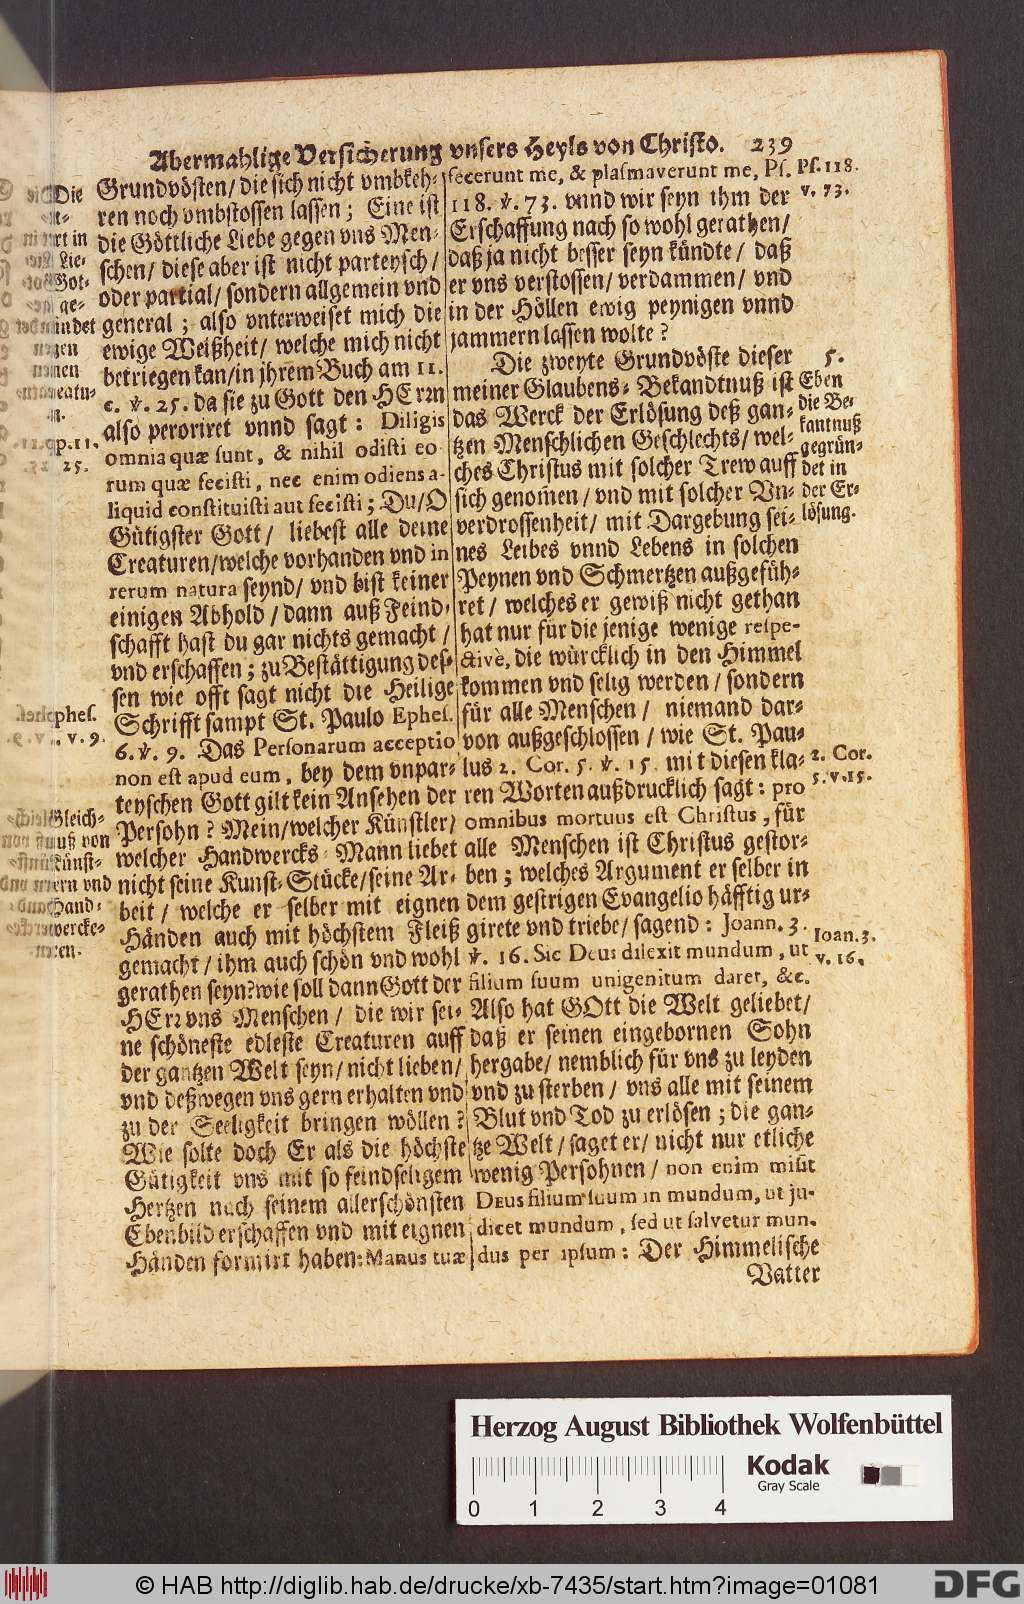 Abermahlige Versicherung vnsers Heyls von Christo. 239
Grundvösten/ die sich nicht vmbkeh-
ren noch vmbstossen lassen; Eine ist
die Göttliche Liebe gegen vns Men-
schen/ diese aber ist nicht parteysch/
oder partial/ sondern allgemein vnd
general; also vnterweiset mich die
ewige Weißheit/ welche mich nicht
betriegen kan/ in jhrem Buch am 11.
c. v. 25. da sie zu Gott den HErrn
also peroriret vnnd sagt: Diligis
omnia quæ sunt, & nihil odisti eo-
rum quæ fecisti, nec enim odiens a-
liquid constituisti aut fecisti; Du/ O
Gütigster Gott/ liebest alle deine
Creaturen/ welche vorhanden vnd in
rerum natura seynd/ vnd bist keiner
einigen Abhold/ dann auß Feind-
schafft hast du gar nichts gemacht/
vnd erschaffen; zu Bestättigung des-
sen wie offt sagt nicht die Heilige
Schrifft sampt St. Paulo Ephes.
6. v. 9. Das Personarum acceptio
non est apud eum, bey dem vnpar-
teyschen Gott gilt kein Ansehen der
Persohn? Mein/ welcher Künstler/
welcher Handwercks-Mann liebet
nicht seine Kunst-Stücke/ seine Ar-
beit/ welche er selber mit eignen
Händen auch mit höchstem Fleiß
gemacht/ ihm auch schön vnd wohl
gerathen seyn? wie soll dann Gott der
HErr vns Menschen/ die wir sei-
ne schöneste edleste Creaturen auff
der gantzen Welt seyn/ nicht lieben/
vnd deßwegen vns gern erhalten vnd
zu der Seeligkeit bringen wöllen?
Wie solte doch Er als die höchste
Gütigkeit vns mit so feindseligem
Hertzen nach seinem allerschönsten
Ebenbild erschaffen vnd mit eignen
Händen formirt haben: Manus tuæ
Gleich-
nuß von
Künst-
lern vnd
Hand-
wercke-
ren.
fecerunt me, & plasmaverunt me, Ps.
118. v. 73. vnnd wir seyn ihm der
Erschaffung nach so wohl gerathen/
daß ja nicht besser seyn kündte/ daß
er vns verstossen/ verdammen/ vnd
in der Höllen ewig peynigen vnnd
jammern lassen wolte?
Die zweyte Grundvöste dieser
meiner Glaubens-Bekandtnuß ist
das Werck der Erlösung deß gan-
tzen Menschlichen Geschlechts/ wel-
ches Christus mit solcher Trew auff
sich genom̃en/ vnd mit solcher Vn-
verdrossenheit/ mit Dargebung sei-
nes Leibes vnnd Lebens in solchen
Peynen vnd Schmertzen außgefüh-
ret/ welches er gewiß nicht gethan
hat nur für die jenige wenige respe-
ctivè, die würcklich in den Himmel
kommen vnd selig werden/ sondern
für alle Menschen/ niemand dar-
von außgeschlossen/ wie St. Pau-
lus 2. Cor. 5. v. 15. mit diesen kla-
ren Worten außdrucklich sagt: pro
omnibus mortuus est Christus, für
alle Menschen ist Christus gestor-
ben; welches Argument er selber in
dem gestrigen Evangelio häfftig ur-
girete vnd triebe/ sagend: Joann. 3.
v. 16. Sic Deus dilexit mundum, ut
filium suum unigenitum daret, &c.
Also hat GOtt die Welt geliebet/
daß er seinen eingebornen Sohn
hergabe/ nemblich für vns zu leyden
vnd zu sterben/ vns alle mit seinem
Blut vnd Tod zu erlösen; die gan-
tze Welt/ saget er/ nicht nur etliche
wenig Persohnen/ non enim misit
Deus filium suum in mundum, ut ju-
dicet mundum, sed ut salvetur mun-
dus per ipsum: Der Himmelische
Vatter
Ps. 118.
v. 73.
5.
Eben
die Be-
kantnuß
gegrün-
det in
der Er-
lösung.
2. Cor.
5. v. 15.
Ioan. 3.
v. 16.
Herzog August Bibliothek Wolfenbüttel
0 1 2 3 4
Kodak
Gray Scale
© HAB http://diglib.hab.de/drucke/xb-7435/start.htm?image=01081
DFG